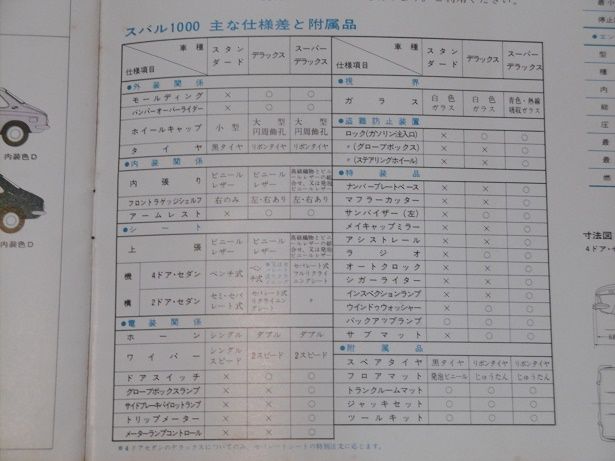 スバル1000 主な仕様差と附属品
車種 スタンダード デラックス スーパーデラックス
仕様項目
●外装関係
モールディング × ○ ○
バンパーオーバーライダー × ○ ○
ホイールキャップ 小型 大型円周飾孔 大型円周飾孔
タイヤ 黒タイヤ リボンタイヤ リボンタイヤ
●内装関係
内張り ビニールレザー ビニールレザー
フロントラゲッジシェルフ 右のみ 左・右あり 左・右あり
アームレスト × ○ ○
●シート
上張 ビニールレザー ビニールレザー
機構 4ドア・セダン ベンチ式 ベンチ式 セパレート式フルリクライニングシート
2ドア・セダン セミ・セパレート式 セパレート式リクライニングシート 〃
●電装関係
ホーン シングル ダブル ダブル
ワイパー シングルスピード 2スピード 2スピード
ドアスイッチ × ○ ○
グローブボックスランプ × × ○
サイドブレーキパイロットランプ × × ○
トリップメーター × × ○
メーターランプコントロール × × ○
車種 スタンダード デラックス スーパーデラックス
仕様項目
●視界
ガラス 白色ガラス 白色ガラス 青色・熱線
●盗難防止装置
ロック(ガソリン注入口) × ○ ○
〃(グローブボックス) × × ○
〃(ステアリングホイール) × ○ ○
●特装品
ナンバープレートベース × × ○
マフラーカッター × × ○
サンバイザー(左) × ○ ○
メイキャップミラー × × ○
アシストレール × ○ ○
ラジオ × ○ ○
オートクロック × × ○
シガーライター × × ○
インスペクションランプ × × ○
ウインドウォッシャー × ○ ○
バックアップランプ × ○ ○
サブマット × × ○
●附属品
スペアタイヤ 黒タイヤ リボンタイヤ リボンタイヤ
フロアマット 発泡ビニール じゅうたん じゅうたん
トランクルームマット ○ ○ ○
ジャッキセット ○ ○ ○
ツールキット ○ ○ ○
※4ドアセダンのデラックスについてのみ、セパレートシートの特別注文に応じます。
内装色D
内装色D
最小
停止
●エン
種
内
総
圧
最
最
燃
寸法図
4ドア・セ